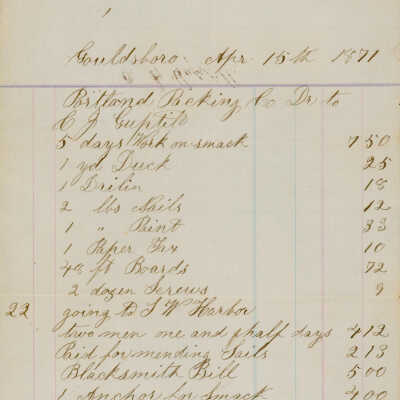 Gouldsboro Apr 15th 1871
Portland Packing Co Dr to
C J Guptill
5 days Work on smack 7 50
1 yd Duck 25
1 Drilin 18
2 lbs Nails 12
1 " Paint 33
1 Paper Tax 10
48 ft Boards 72
2 dozen Screws 9
22 going to S W Harbor
two men one and half days 4 12
Paid for mending Sails 2 13
Blacksmith Bill 5 00
1 Anchor for Smack 4 00